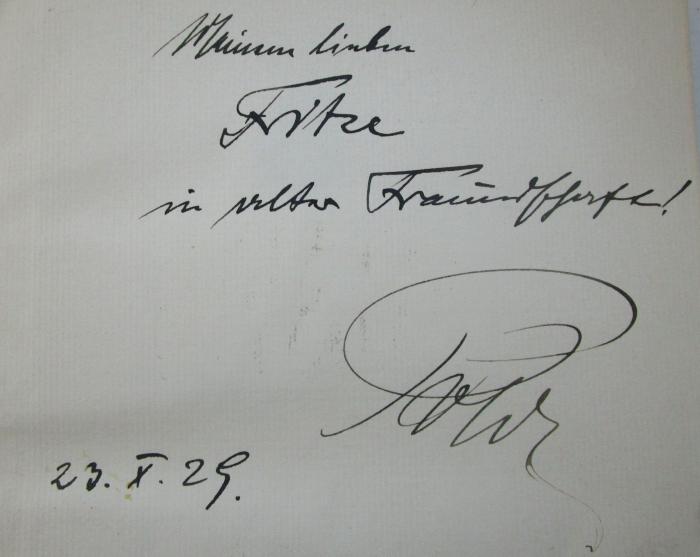 Meinem lieben
Fritze
in alter Freundschaft!
23. X. 29.